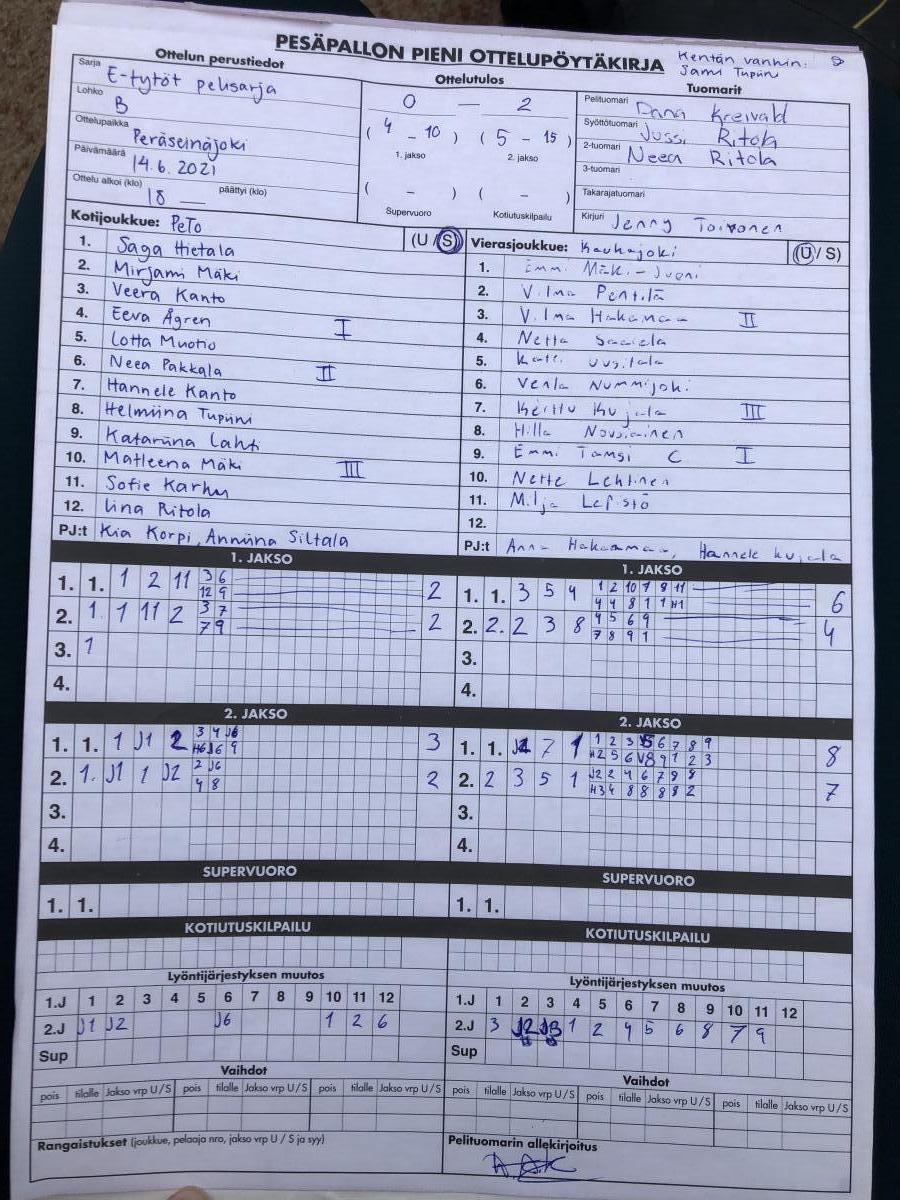 PESÄPALLON PIENI OTTELUPÖYTÄKIRJA
Kentän vanhin:
Sami Tupiini
Ottelun perustiedot
Sarja E-tytöt pelisarja
Lohko B
Ottelupaikka Peräseinäjoki
Päivämäärä 14.6.2021
Ottelu alkoi (klo) 18 päättyi (klo)
Ottelutulos
0 — 2
(4 - 10) (5 - 15)
1. jakso 2. jakso
( - ) ( - )
Supervuoro Kotiutuskilpailu
Tuomarit
Pelituomari Kreivald
Syöttötuomari Jussi Ritola
2-tuomari Neea Ritola
3-tuomari
Takarajatuomari
Kirjuri Jenny Toivonen
Kotijoukkue: PeTo (U / S)
1. Saga Hietala
2. Mirjami Mäki
3. Veera Kanto
4. Eeva Ågren I
5. Lotta Muotio
6. Neea Pakkala II
7. Hannele Kanto
8. Helmiina Tupiini
9. Katariina Lahti
10. Matleena Mäki III
11. Sofie Karhu
12. Iina Ritola
PJ:t Kia Korpi, Anniina Siltala
Vierasjoukkue: Kauhajoki (U / S)
1. Emmi Mäki-Jussi
2. Vilma Penttilä
3. Vilma Hakamaa II
4. Netta
5. Uusitalo
6. Venla Nummijoki
7. Kerttu Kujala III
8. Hilla Nousiainen
9. Emmi Tamsi C I
10. Nette Lehtinen
11. Milja Lepistö
12.
PJ:t Hakamaa, Hannele Kujala
1. JAKSO
1. 1. 1 2 11 3 6 2
12 9
2. 1. 1 11 2 3 7 2
7 9
3. 1
4.
1. JAKSO
1. 1. 3 5 4 1 2 10 7 9 11 6
4 4 8 1 1 H1
2. 2. 2 3 8 4 5 6 9 4
7 8 9 1
3.
4.
2. JAKSO
1. 1. 1 J1 2 3 4 J6 3
H6 J6 9
2. 1. J1 1 J2 2 J6 2
4 8
3.
4.
2. JAKSO
1. 1. 7 1 1 2 3 6 7 8 9 8
H2 5 6 9 1 2 3
2. 2 3 5 1 J2 2 4 6 7 9 8 7
H3 4 8 8 8 8 2
3.
4.
SUPERVUORO
1. 1.
SUPERVUORO
1. 1.
KOTIUTUSKILPAILU
KOTIUTUSKILPAILU
Lyöntijärjestyksen muutos
1.J 1 2 3 4 5 6 7 8 9 10 11 12
2.J J1 J2 J6 1 2 6
Sup
Lyöntijärjestyksen muutos
1.J 1 2 3 4 5 6 7 8 9 10 11 12
2.J 3 J2 J3 1 2 4 5 6 8 7 9
Sup
Vaihdot
pois tilalle Jakso vrp U / S pois tilalle Jakso vrp U / S pois tilalle Jakso vrp U / S
Vaihdot
pois tilalle Jakso vrp U / S pois tilalle Jakso vrp U / S pois tilalle Jakso vrp U / S
Rangaistukset (joukkue, pelaaja nro, jakso vrp U / S ja syy)
Pelituomarin allekirjoitus